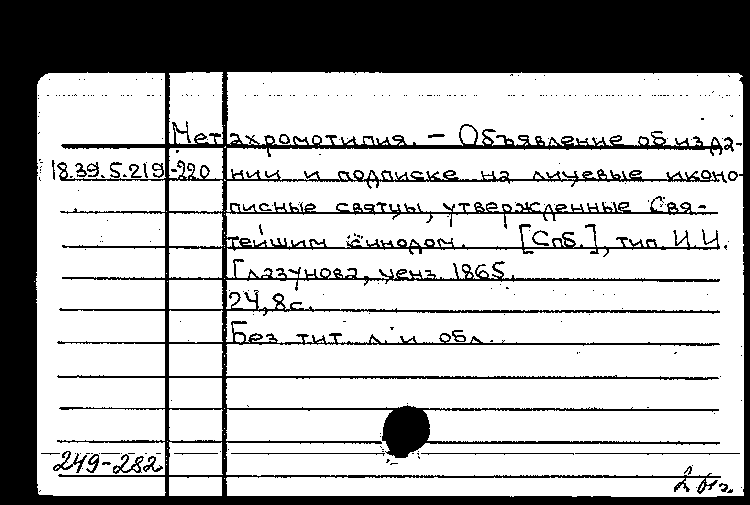 Метахромотипия. - Объявление об изда-
18.39.5.219-220 нии и подписке на лицевые иконо-
писные святцы, утвержденные Свя-
тейшим синодом. [Спб.], тип. И.И.
Глазунова, ценз. 1865.
24,8с.
Без тит. л. и обл.
249-282